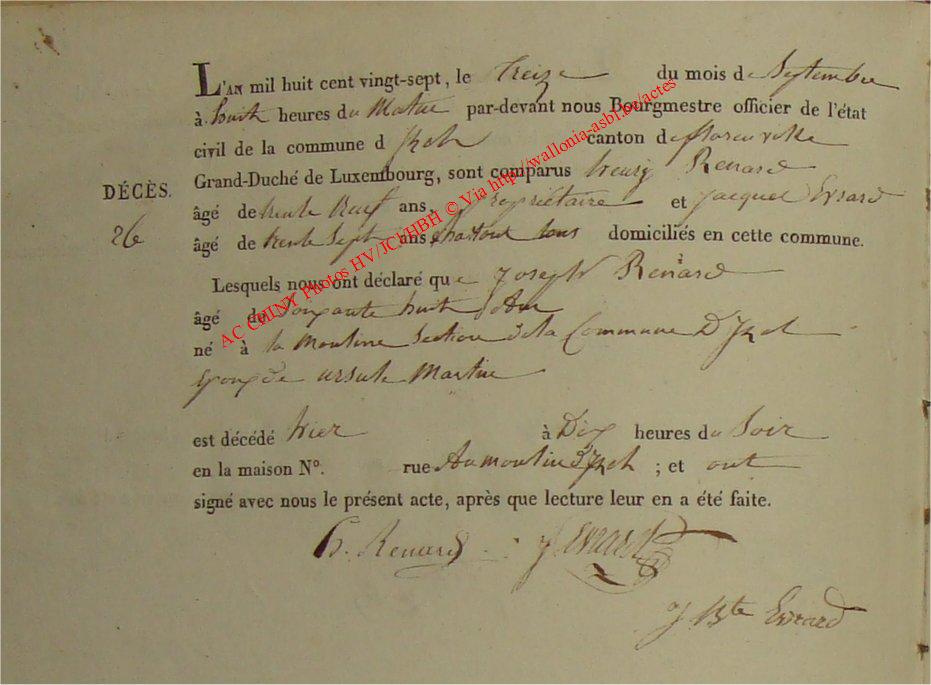 L'AN mil huit cent vingt-sept, le treize du mois de Septembre
à huit heures du Matin par-devant nous Bourgmestre officier de l'état
civil de la commune d'Izel canton de florenville
Grand-Duché de Luxembourg, sont comparus henry Renard
DÉCÈS.
26
âgé de trente Neuf ans, propriétaire et Jacques Evrard
âgé de trente Sept ans, tous domiciliés en cette commune.
Lesquels nous ont déclaré que Joseph Renard
âgé de Soixante huit Ans
né à la Mouline Section de la Commune D'Izel
Epoux de ursule Martin
est décédé hier à Dix heures du Soir
en la maison N°. rue Au moulin d'Izel ; et ont
signé avec nous le présent acte, après que lecture leur en a été faite.
h. Renard J Evrard
J Bte Evrard
AC CHINY Photos HV/JCI/HBH © Via http://wallonia-asbl.be/actes